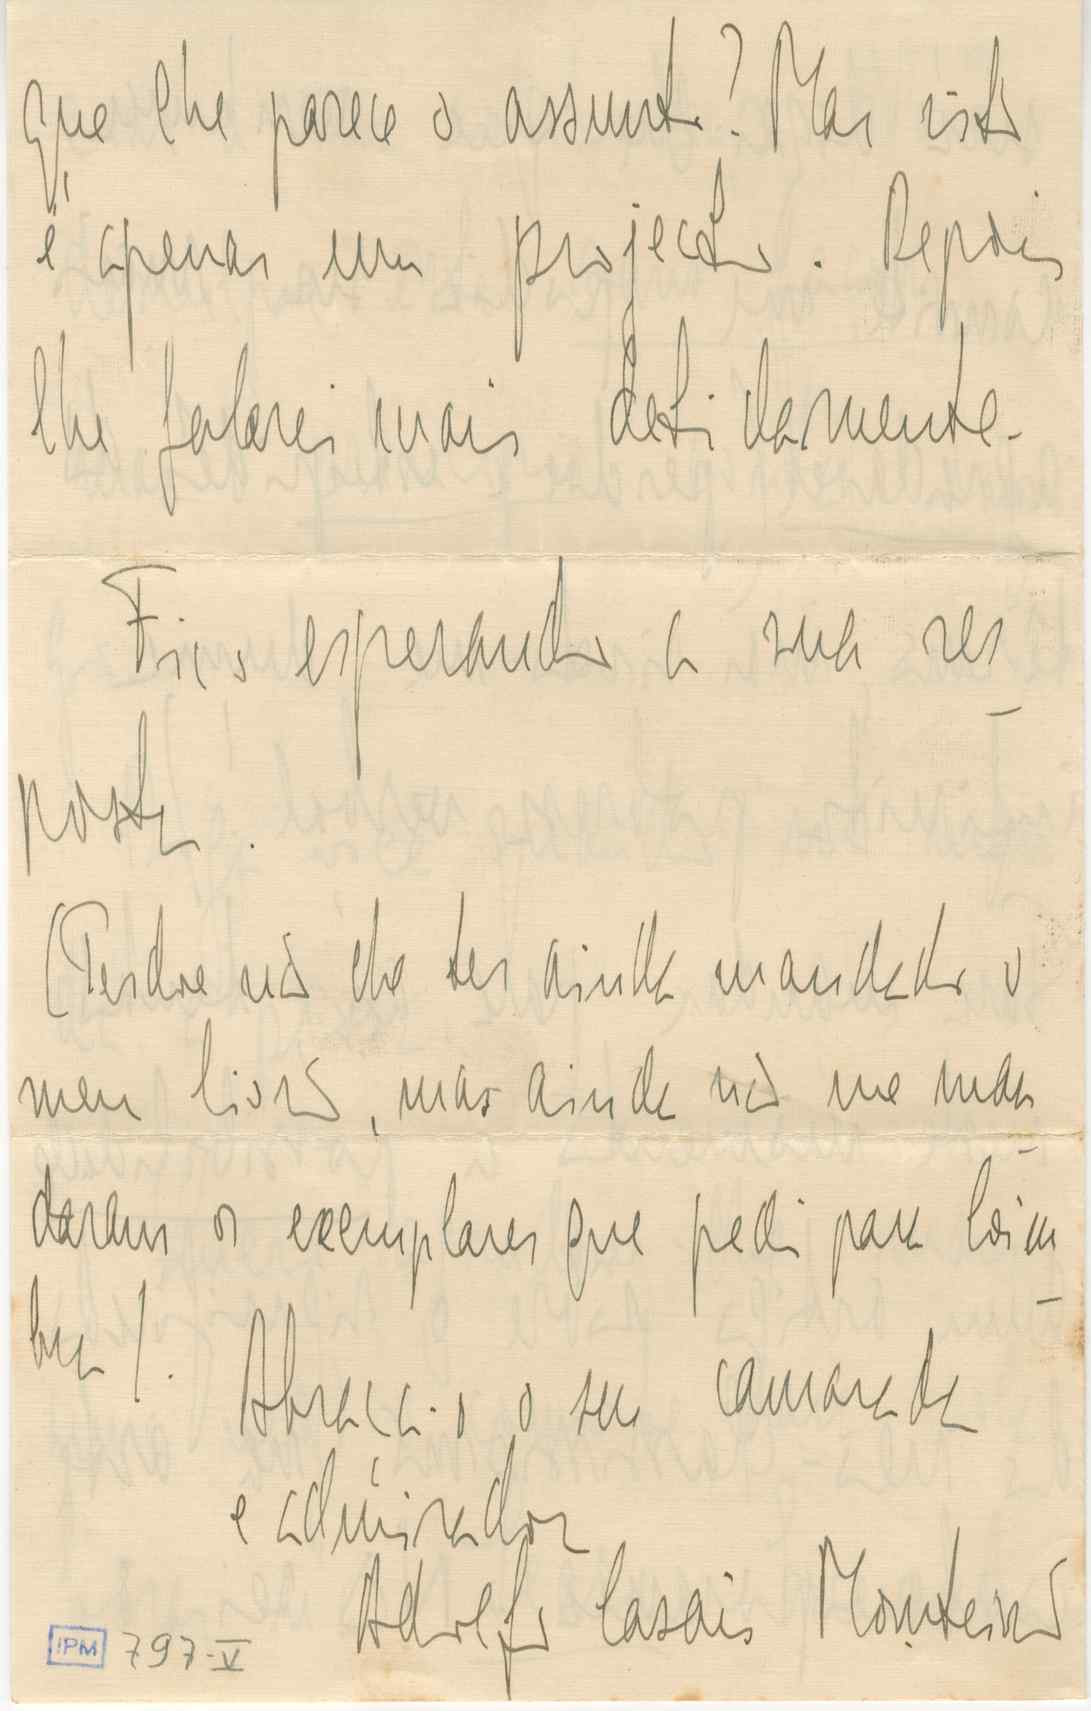 Que lhe parece o assunto? Mas isto
é apenas um projecto. Depois
lhe falarei mais detidamente.
Fico esperando a sua res-
posta.
(Perdoe não lhe ter ainda mandado o
meu livro, mas ainda não me man-
daram os exemplares que pedi para Coim-
bra).
Abraça-o o seu camarada
e admirador
Adolfo Casais Monteiro
IPM 797-V